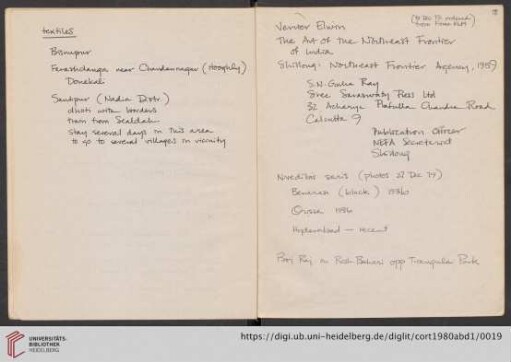 textiles
Bismupur
Ferashdanga near Chandannagar (Hooghly)
Donekal
Santipur (Nadia Distr.)
dhoti with borders
train from Sealdah
stay several days in this area
to go to several villages in vicinity
Verrier Elwin
The Art of the Northeast Frontier
of India
Shillong: Northeast Frontier Agency, 1959)
S.N. Guha Ray
Sree Saraswaty Press Ltd
32 Acharya Prafulla Chandra Road
Calcutta 9
Publication Officer
NEFA Secretariat
Shillong
Nivedita's saris (photos 22 Dec 79)
Benares (black) 1930s
Orissa
Hyderabad — recent
Raj opp Triangular Park
UNIVERSITÄTS-
BIBLIOTHEK
HEIDELBERG
https://digi.ub.uni-heidelberg.de/diglit/cort1980abd1/0019